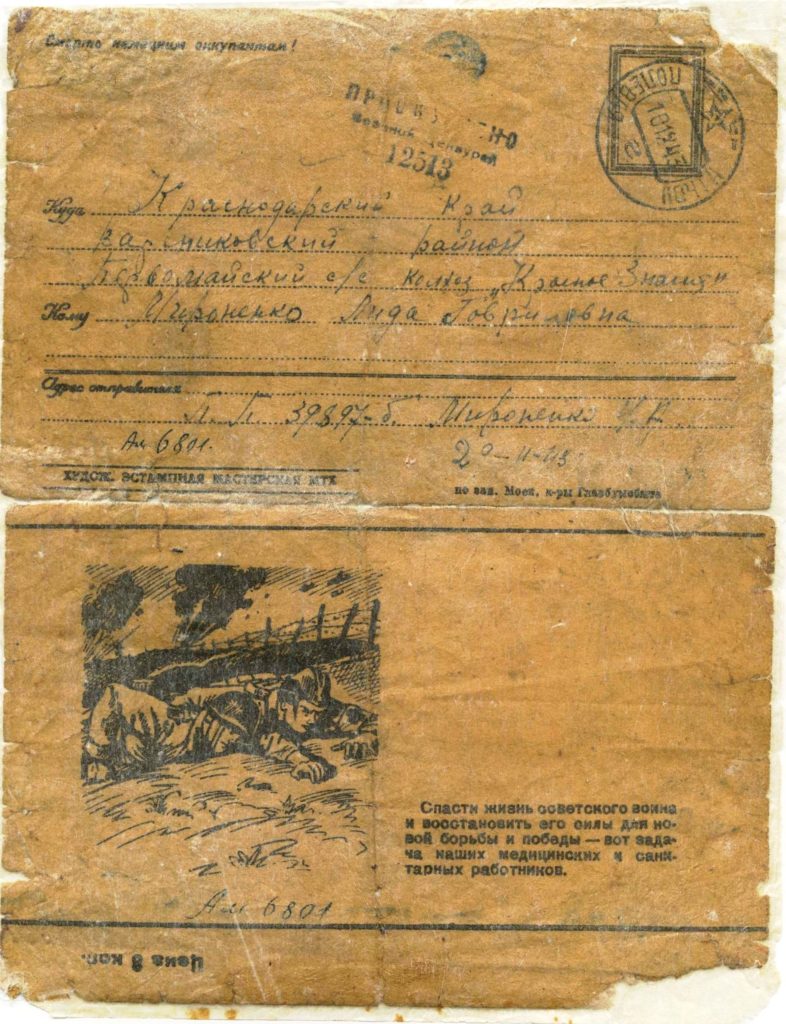 Смерть немецким оккупантам!
ПРОСМОТРЕНО
Военной Цензурой
12513
ПОЛЕВАЯ ПОЧТА
Куда Краснодарский Край
район
Первомайский с/с колхоз „Красное Знамя"
Кому Мироненко Лида Гавриловна
Адрес отправителя
П. П. 39897-б. Мироненко
Ам 6801.
20-11-43
ХУДОЖ. ЭСТАМПНАЯ МАСТЕРСКАЯ МТХ
по зак. Моск. к-ры Главбумсбыта
Спасти жизнь советского воина
и восстановить его силы для но-
вой борьбы и победы — вот зада-
ча наших медицинских и сани-
тарных работников.
Ам 6801
Цена 8 коп.